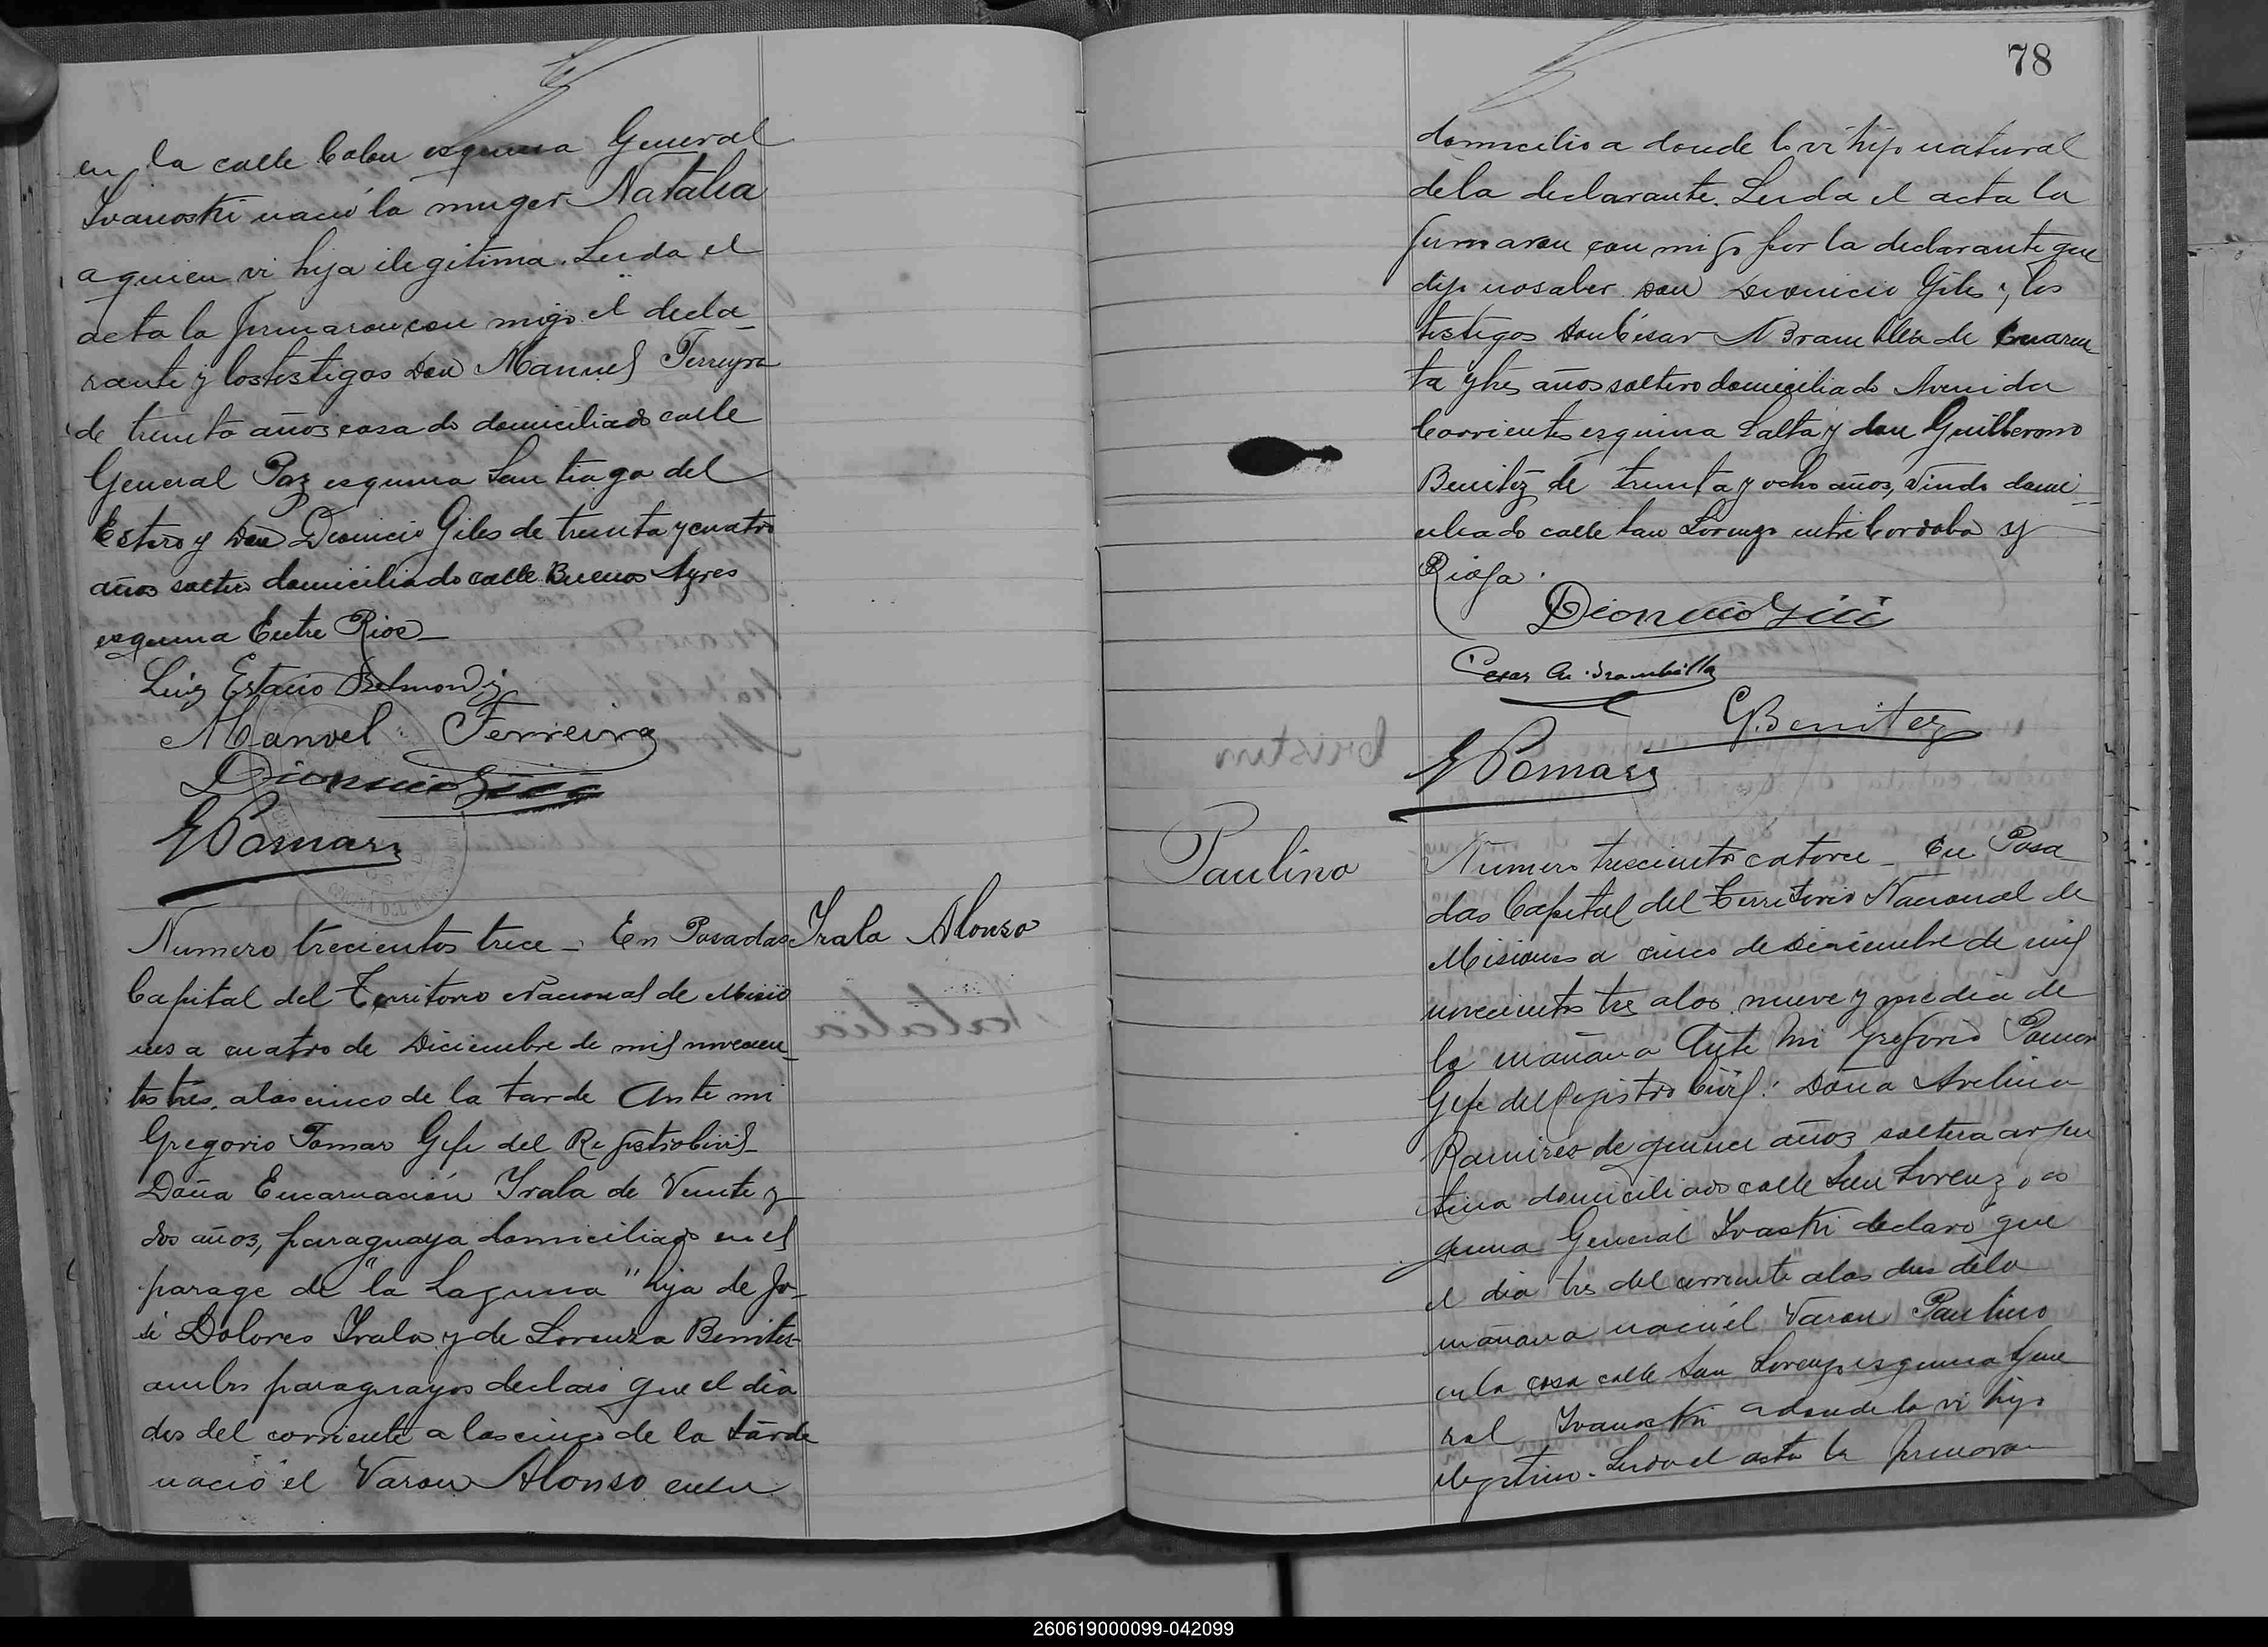 en la calle Colon esquina General
Ivanoski nació la muger Natalia
a quien vi hija ilegitima. Leida el
acta la firmaron con migo el decla
rante y los testigos Don Manuel Ferreyra
de treinta años casado domiciliado calle
General Paz esquina Santiago del
Estero y Don Dionicio Giles de treinta y cuatro
años soltero domiciliado calle Buenos Ayres
esquina Entre Rios
Luiz Estacio Belmondiz
Manoel Ferreira
Dionicio Giles
G Pomar
Numero trecientos trece - En Posadas
Capital del Territorio Nacional de Misio
nes a cuatro de Diciembre de mil novecien
tos tres, a las cinco de la tarde Ante mi
Gregorio Pomar Gefe del Registro Civil
Doña Encarnación Yrala de Veinte y
dos años, paraguaya domiciliado en el
parage de "la Laguna" hija de Jo-
sé Dolores Yrala y de Lorenza Benites
ambos paraguayos declaró que el dia
dos del corriente a las cinco de la tarde
nació el Varon Alonso en su
Yrala Alonso
78
domicilio a donde lo vi hijo natural
de la declarante. Leida el acta la
firmaron con migo por la declarante que
dijo no saber Don Dionicio Giles; los
testigos Don César N Brambilla de cuaren
ta y tres años soltero domiciliado Avenida
Corrientes esquina Salta y don Guillermo
Benitez de treinta y ocho años, viudo domi
ciliado calle San Lorenzo entre Cordoba y
Rioja.
Dionicio Giles
Cesar Brambilla
G Benitez
G Pomar
Paulino
Numero trescientos catorce - En Posa
das Capital del Territorio Nacional de
Misiones a cinco de Diciembre de mil
novecientos tres a las nueve y media de
la mañana Ante mi Gregorio Pomar
Gefe del Registro Civil: Doña Avelina
Ramires de quince años soltera argen
tina domiciliado calle San Lorenzo es
quina General Ivaski declaró que
el dia tres del corriente a las dies de la
mañana nació el Varon Paulino
en la casa calle San Lorenzo esquina Gene
ral Ivanoski adonde lo vi hijo
ilegitimo. Leida el acta la firmaron